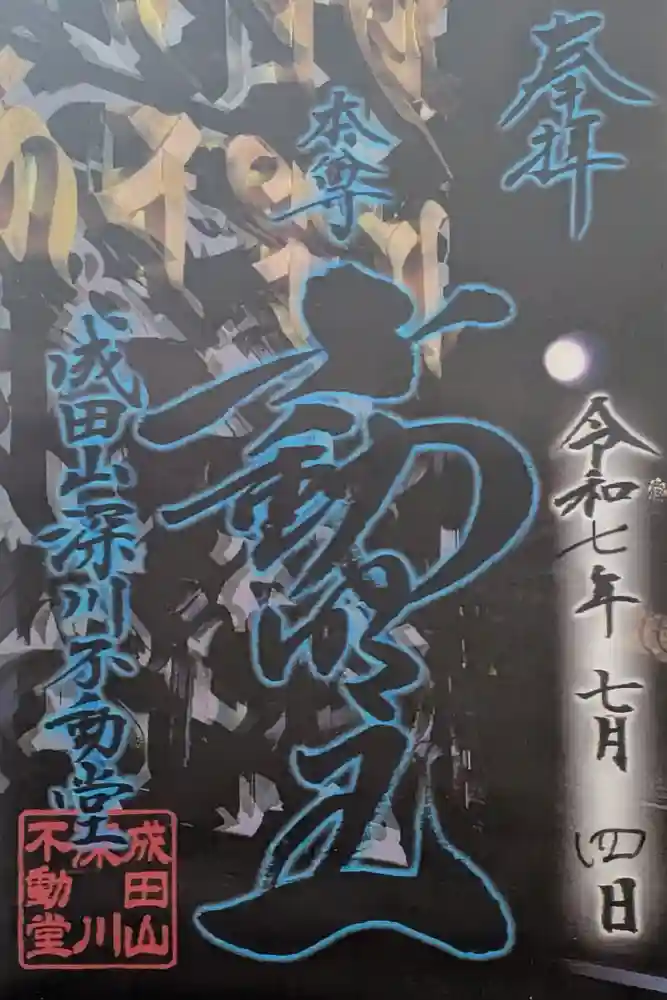 奉拝
令和七年七月四日
本尊
不動明王
成田山深川不動堂
成田山
深川
不動堂